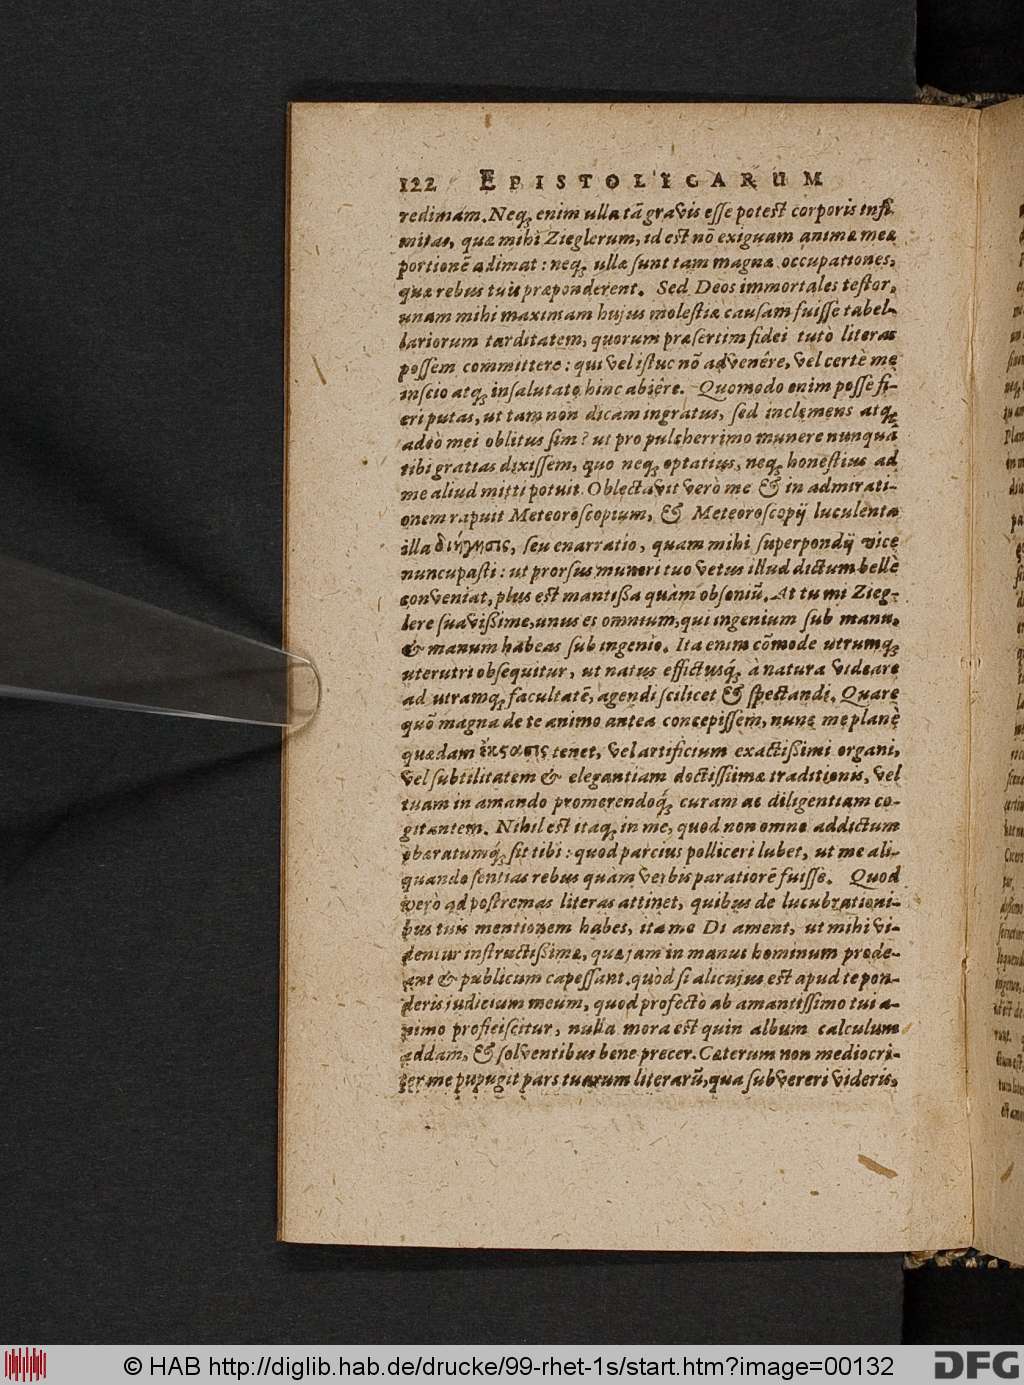 122 EPISTOLICARUM
redimam. Neq; enim ulla tã gravis esse potest corporis infir-
mitas, quæ mihi Zieglerum, id est nõ exiguam animæ meæ
portionẽ adimat: neq; ullæ sunt tam magnæ occupationes,
quæ rebus tuis præponderent. Sed Deos immortales testor,
unam mihi maximam hujus molestiæ causam fuisse tabel-
lariorum tarditatem, quorum præsertim fidei tutò literas
possem committere: qui vel istuc nõ advenêre, vel certè me
inscio atq; insalutato hinc abiêre. Quomodo enim posse fi-
eri putas, ut tam non dicam ingratus, sed inclemens atq;
adeò mei oblitus sim? ut pro pulcherrimo munere nunquã
tibi gratias dixissem, quo neq; optatius, neq; honestius ad
me aliud mitti potuit. Oblectavit verò me & in admirati-
onem rapuit Meteoroscopium, & Meteoroscopij luculenta
illa διήγησις, seu enarratio, quam mihi superpondij vice
nuncupasti: ut prorsus muneri tuo vetus illud dictum bellè
conveniat, plus est mantissa quàm obsoniũ. At tu mi Zieg-
lere suavissime, unus es omnium, qui ingenium sub manu,
& manum habeas sub ingenio. Ita enim cõmode utrumq;
uterutri obsequitur, ut natus effictusq́; à natura videare
ad utramq; facultatẽ, agendi scilicet & spectandi. Quare
quõ magna de te animo antea concepissem, nunc me planè
quædam ἔκστασις tenet, vel artificium exactissimi organi,
vel subtilitatem & elegantiam doctissimæ traditionis, vel
tuam in amando promerendoq́; curam ac diligentiam co-
gitantem. Nihil est itaq; in me, quod non omne addictum
obæratumq́; sit tibi: quod parcius polliceri lubet, ut me ali-
quando sentias rebus quam verbis paratiorẽ fuisse. Quod
verò ad postremas literas attinet, quibus de lucubrationi-
bus tuis mentionem habes, ita me Di ament, ut mihi vi-
dentur instructissimæ, quæ jam in manus hominum prode-
ant & publicum capessant. quòd si alicujus est apud te pon-
deris judicium meum, quod profectò ab amantissimo tui a-
nimo proficiscitur, nulla mora est quin album calculum
addam, & solventibus bene precer. Cæterum non mediocri-
ter me pupugit pars tuarum literarũ, qua subvereri videris,
© HAB http://diglib.hab.de/drucke/99-rhet-1s/start.htm?image=00132
DFG